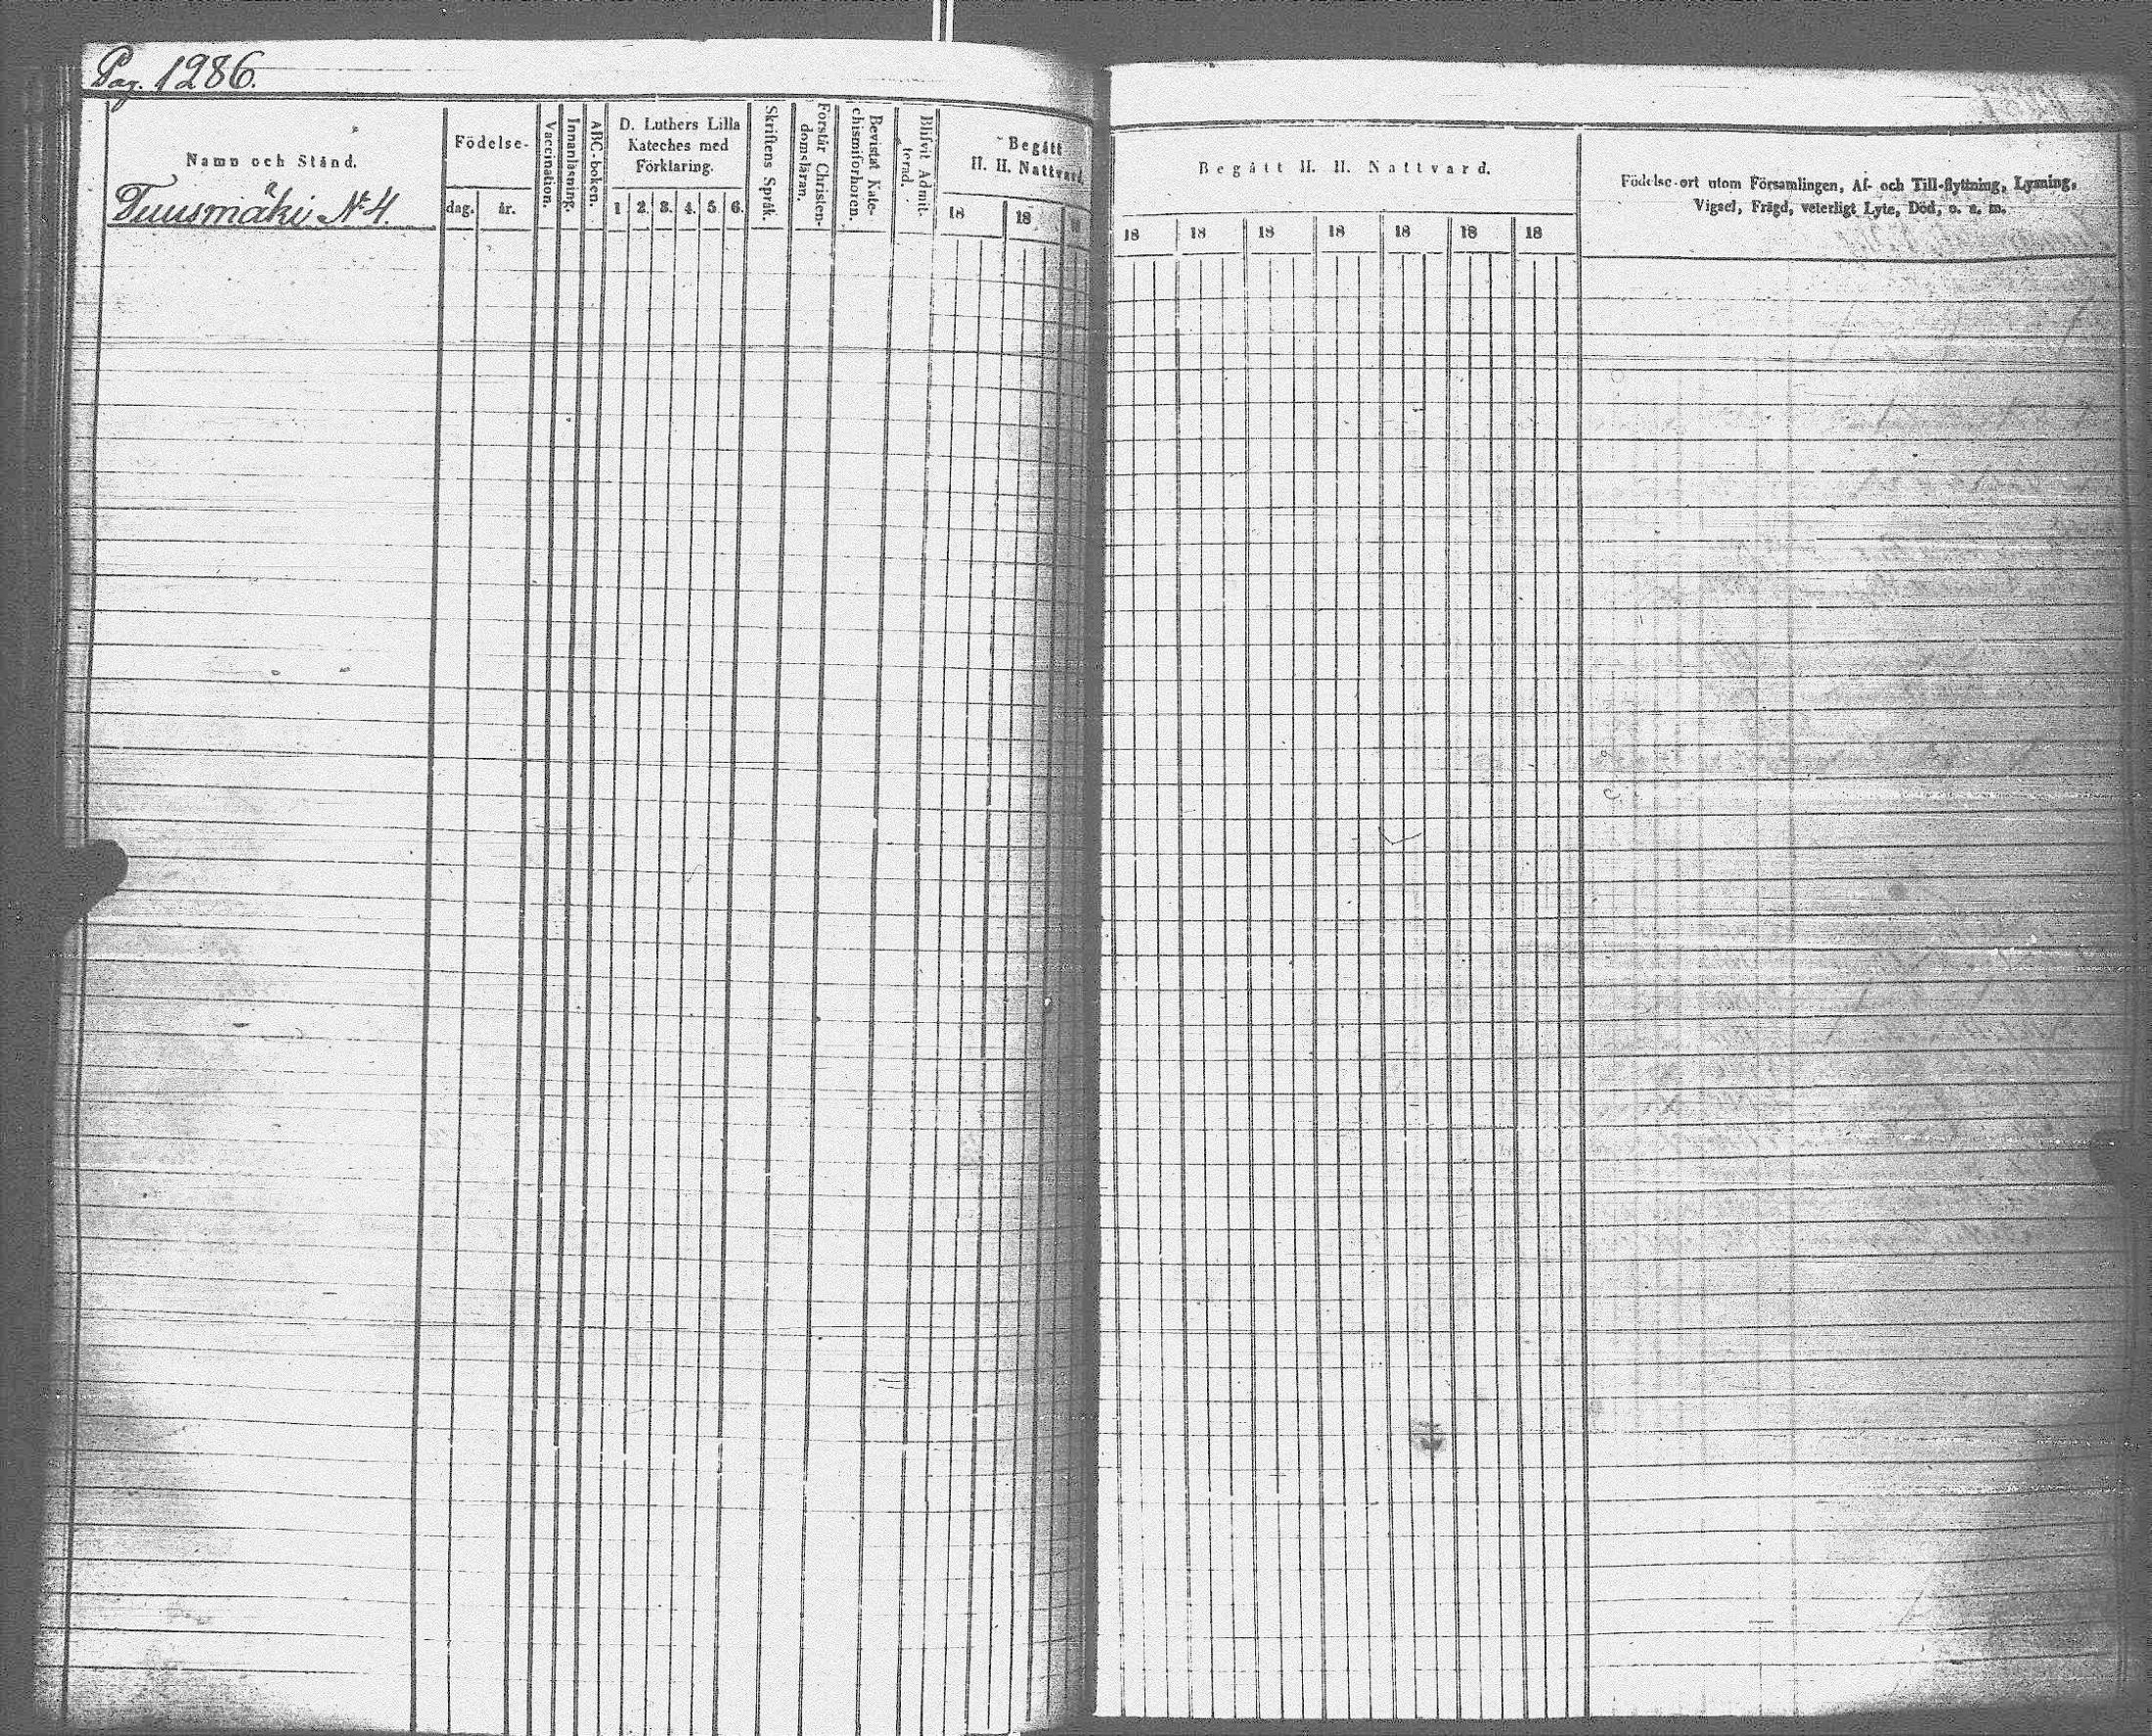 Pag. 1286.
Namn och Stånd.
Tuusmäki N:o 4.
Födelse-
dag.
år.
Vaccination.
Innanläsning.
ABC-boken.
D. Luthers Lilla
Kateches med
Förklaring.
1 2. 3. 4. 5. 6.
Skriftens Språk.
Förstår Christen-
domsläran.
Bevistat Kate-
chismiförhoren.
Blifvit Admit-
terad.
Begått
H. H. Nattvard.
18 18 18
Begått H. H. Nattvard.
18 18 18 18 18 18 18
Födelse-ort utom Församlingen, Af- och Till-flyttning, Lysning,
Vigsel, Frägd, veterligt Lyte, Död, o. s. m.